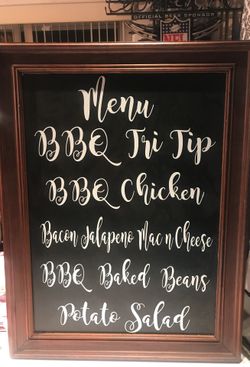 OFFICIAL BEER SPONSOR
NFL
Menu
BBQ Tri Tip
BBQ Chicken
Bacon Jalapeno Mac n Cheese
BBQ Baked Beans
Potato Salad